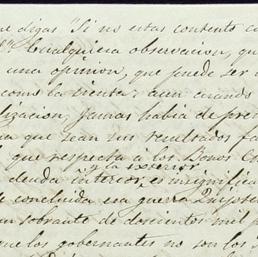 me digas "Si no estas contento co
Cualquiera observacion, qu
una opinion, que puede ser
como la sienta: aun cuando
lizacion, Jamas habia de pre
a que sean sus resultados fa
l que respecta á los Bonos Co
y a exterior
deuda interior, es insignifica
e concluida esa guerra Impos
un sobrante de doscientos mil p
que los gobernantes no son los